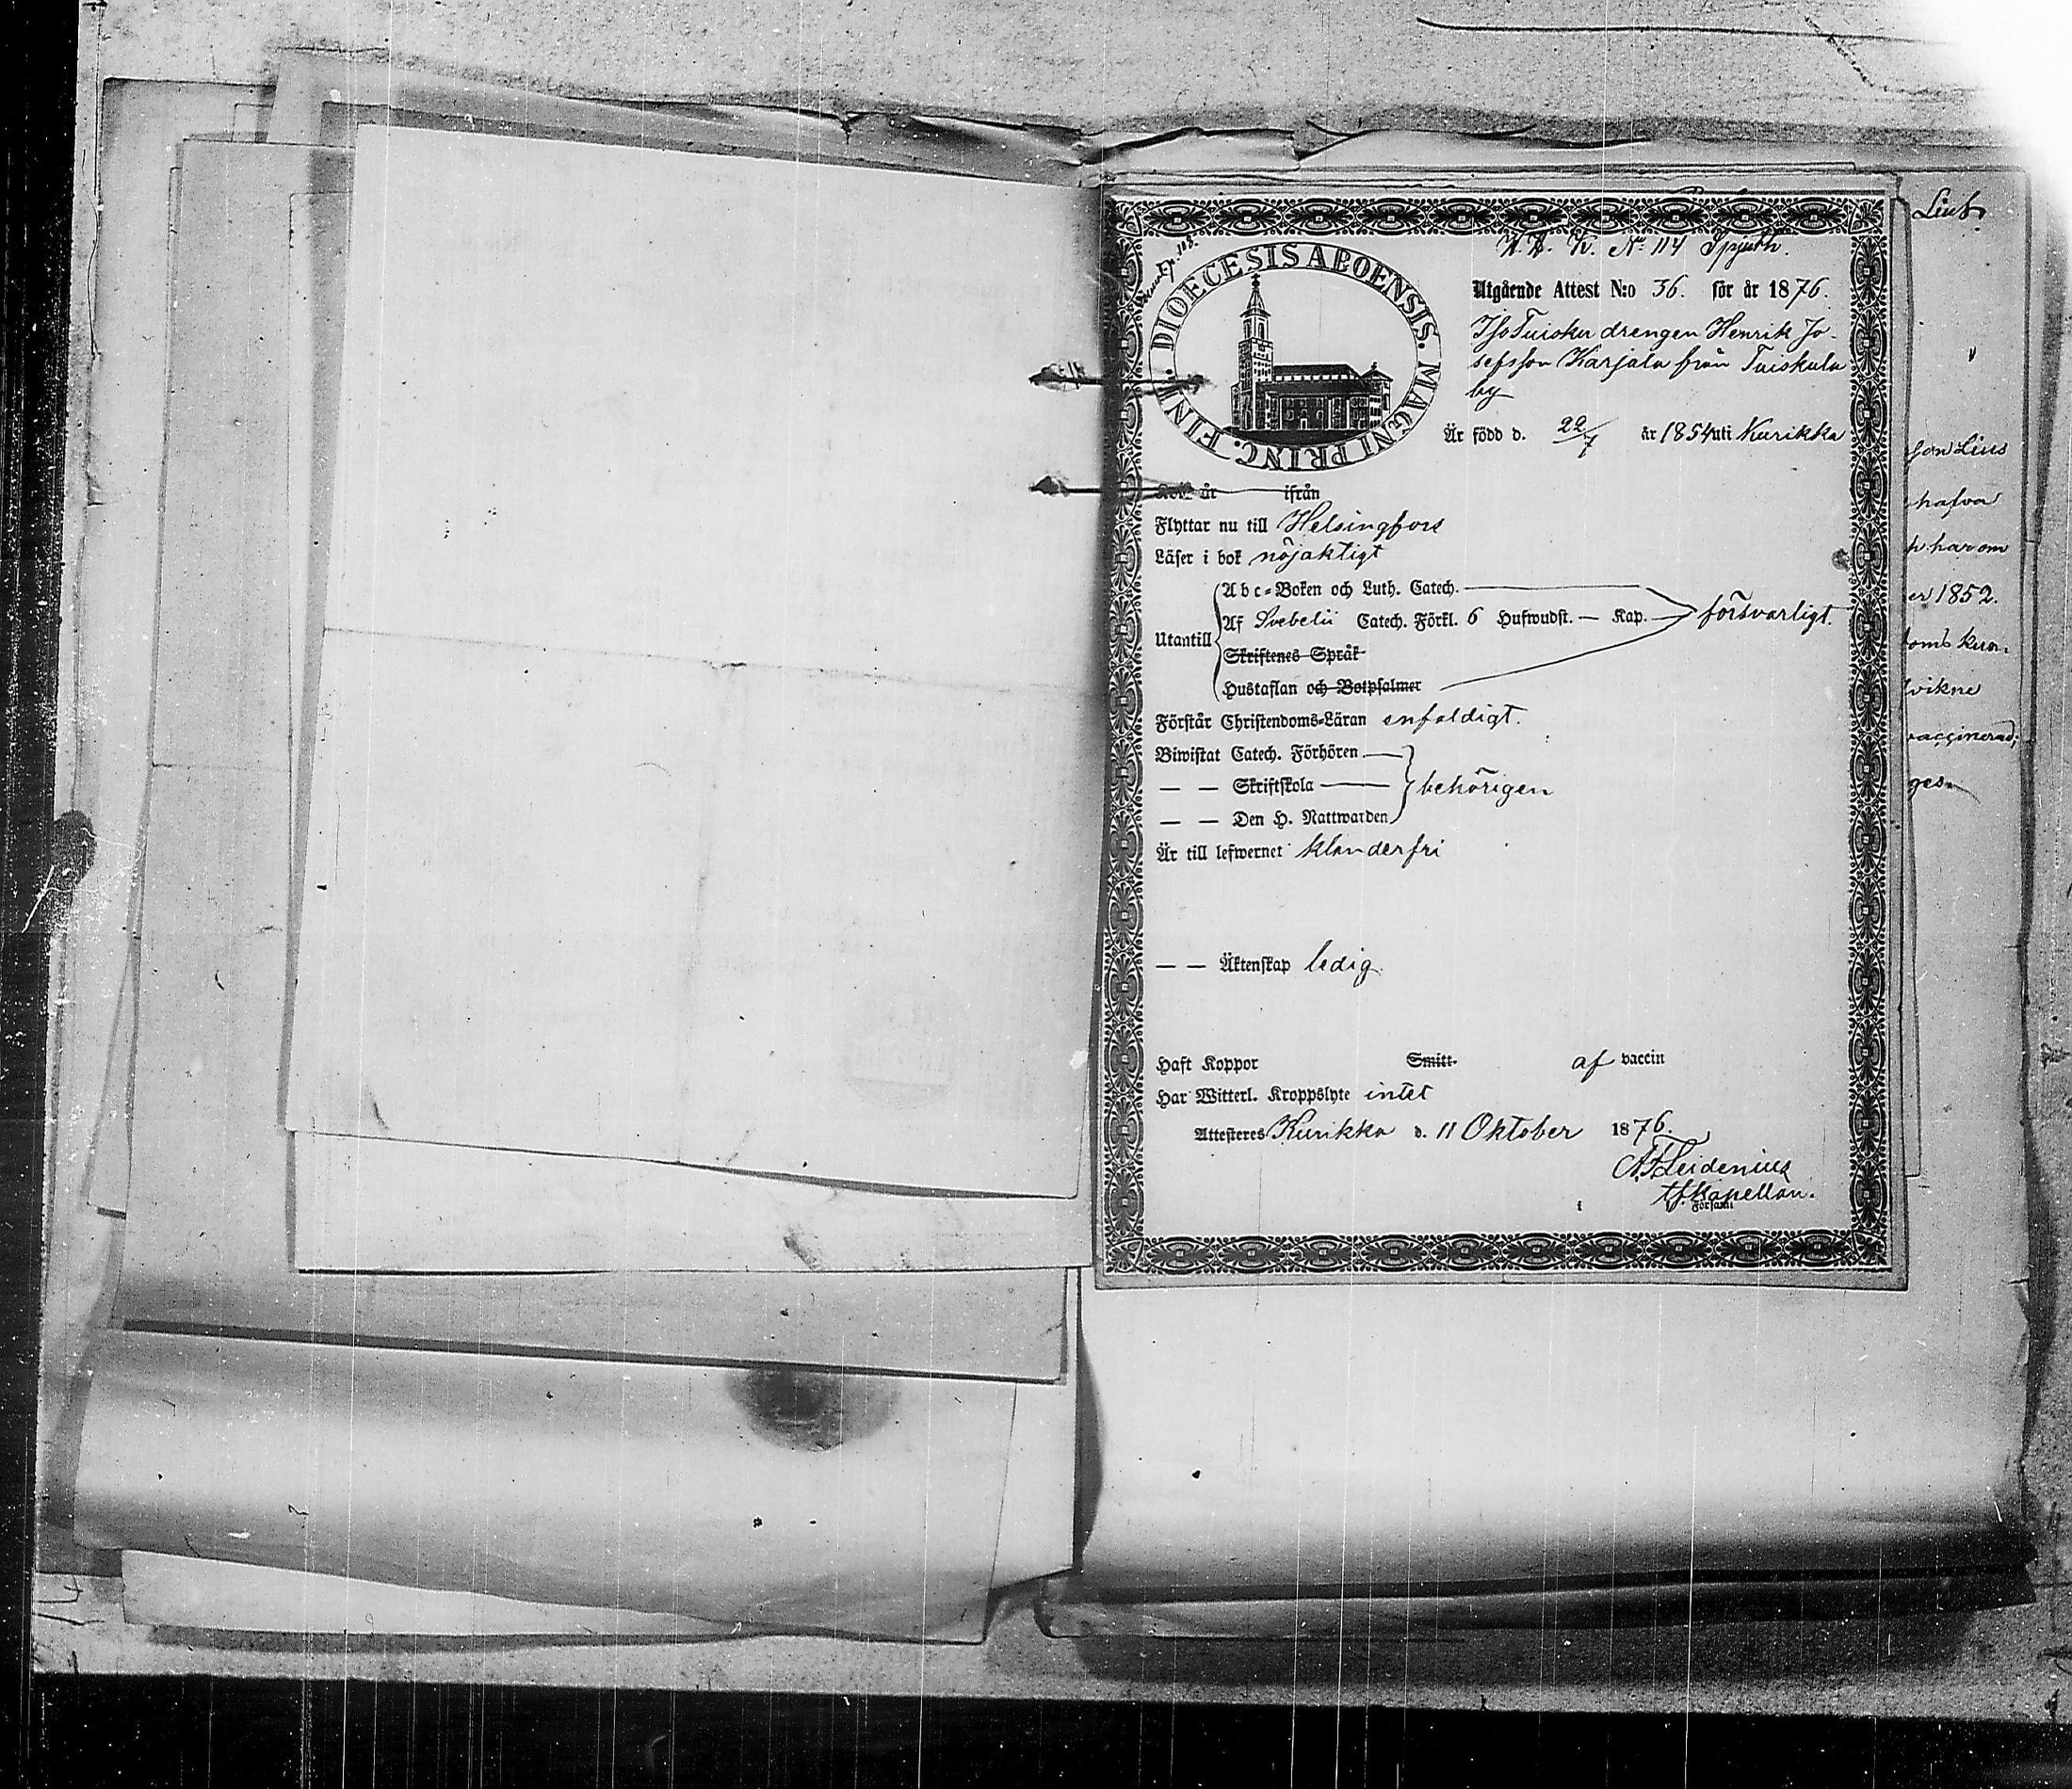 N:o 114
DIOECESIS ABOENSIS. MAGNI PRINC. FINL.
Utgående Attest N:o 36. för år 1876.
Iso Tuisku drengen Henrik Jo-
sefsson Karjala från Tuiskula
by
Är född d. 22/7 år 1854 uti Kurikka
Kom år ifrån
Flyttar nu till Helsingfors
Läser i bok nöjaktigt
Utantill
Abc-Boken och Luth. Catech. —
Af Svebelii Catech. Förkl. 6 Hufwudst. — Kap. — försvarligt.
Skriftenes Språk
Hustaflan och Botpsalmer
Förstår Christendoms-Läran enfaldigt.
Biwistat Catech. Förhören —
— — Skriftskola — behörigen
— — Den H. Nattwarden
Är till lefwernet klanderfri
— — Äktenskap ledig.
Haft Koppor Smitt. af vaccin
Har Witterl. Kroppslyte intet
Attesteres Kurikka d. 11 Oktober 1876.
A. F. Leidenius
tf. Kapellan.
i Församl
son Lius
hafva
har om
er 1852.
vikne
vaccinerad;